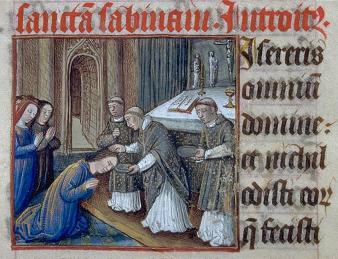 sanctā sabinam. Introitꝰ.
Isereris
omniū
domine.
et nichil
odisti eorꝝ
q̄ fecisti